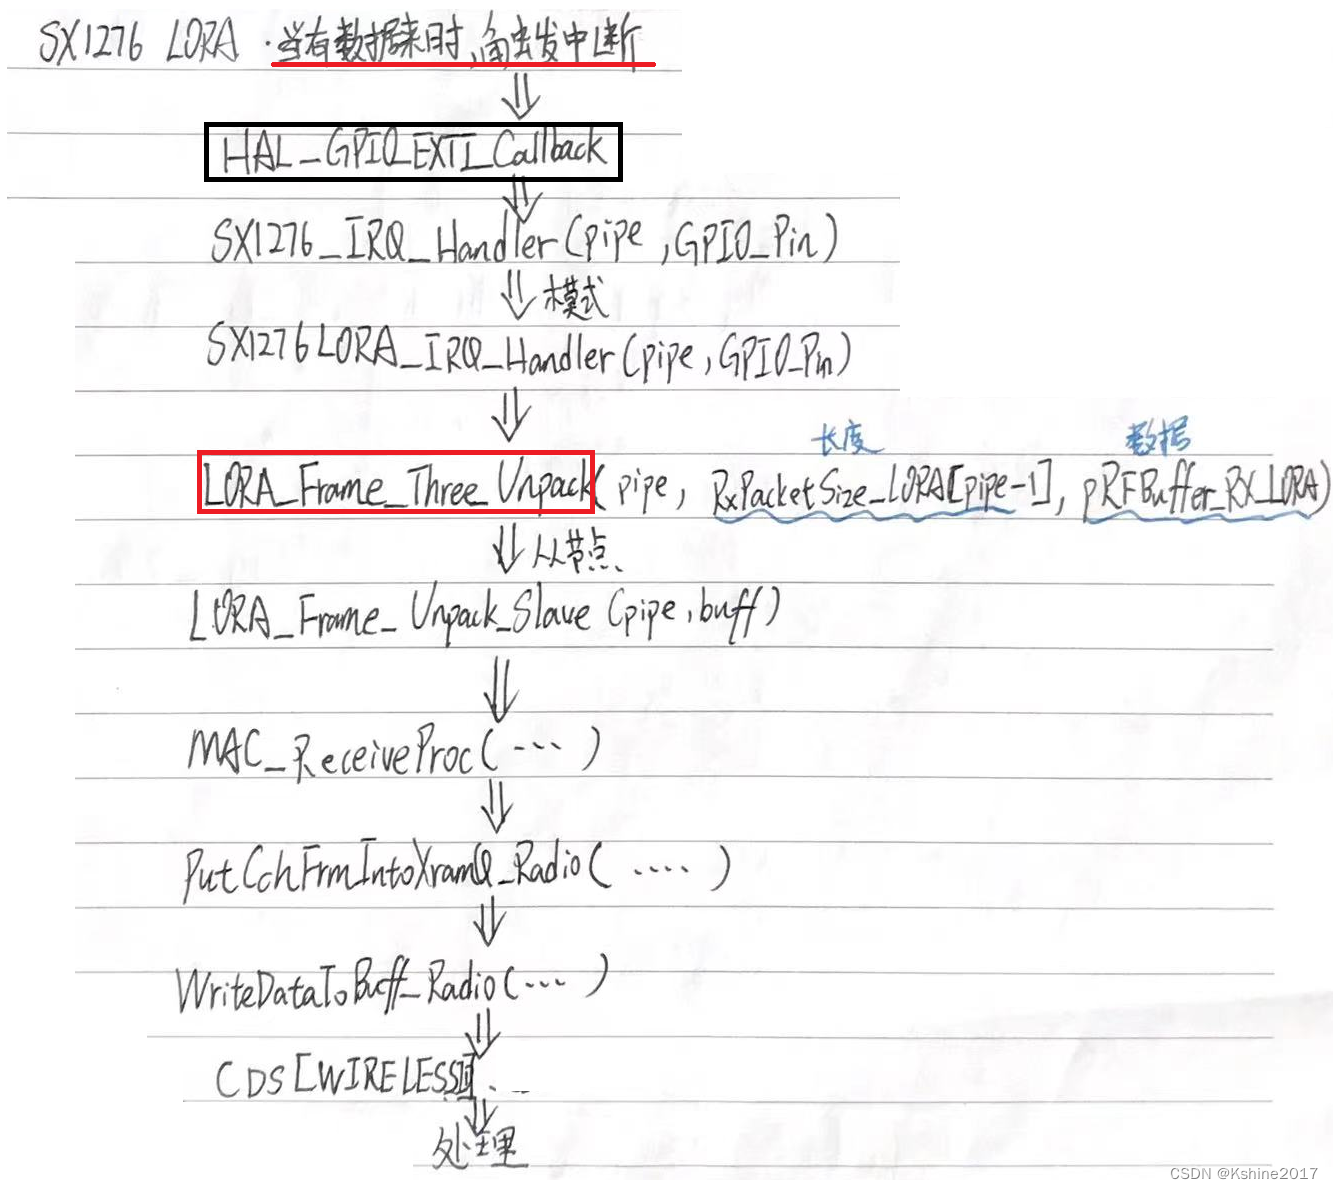 SX1276 LORA . 当有数据来时,触发中断
HAL_GPIO_EXTI_Callback
SX1276_IRQ_Handler(pipe,GPIO_Pin)
模式
SX1276LORA_IRQ_Handler(pipe,GPIO_Pin)
长度 数据
LORA_Frame_Three_Unpack(pipe, RxPacketSize_LORA[pipe-1], pRFBuffer_RX_LORA)
从节点
LORA_Frame_Unpack_Slave(pipe,buff)
MAC_ReceiveProc(...)
PutCchFrmIntoXramQ_Radio(....)
WriteDataToBuff_Radio(...)
CDS[WIRELESSII]. ...
处理
CSDN @Kshine2017